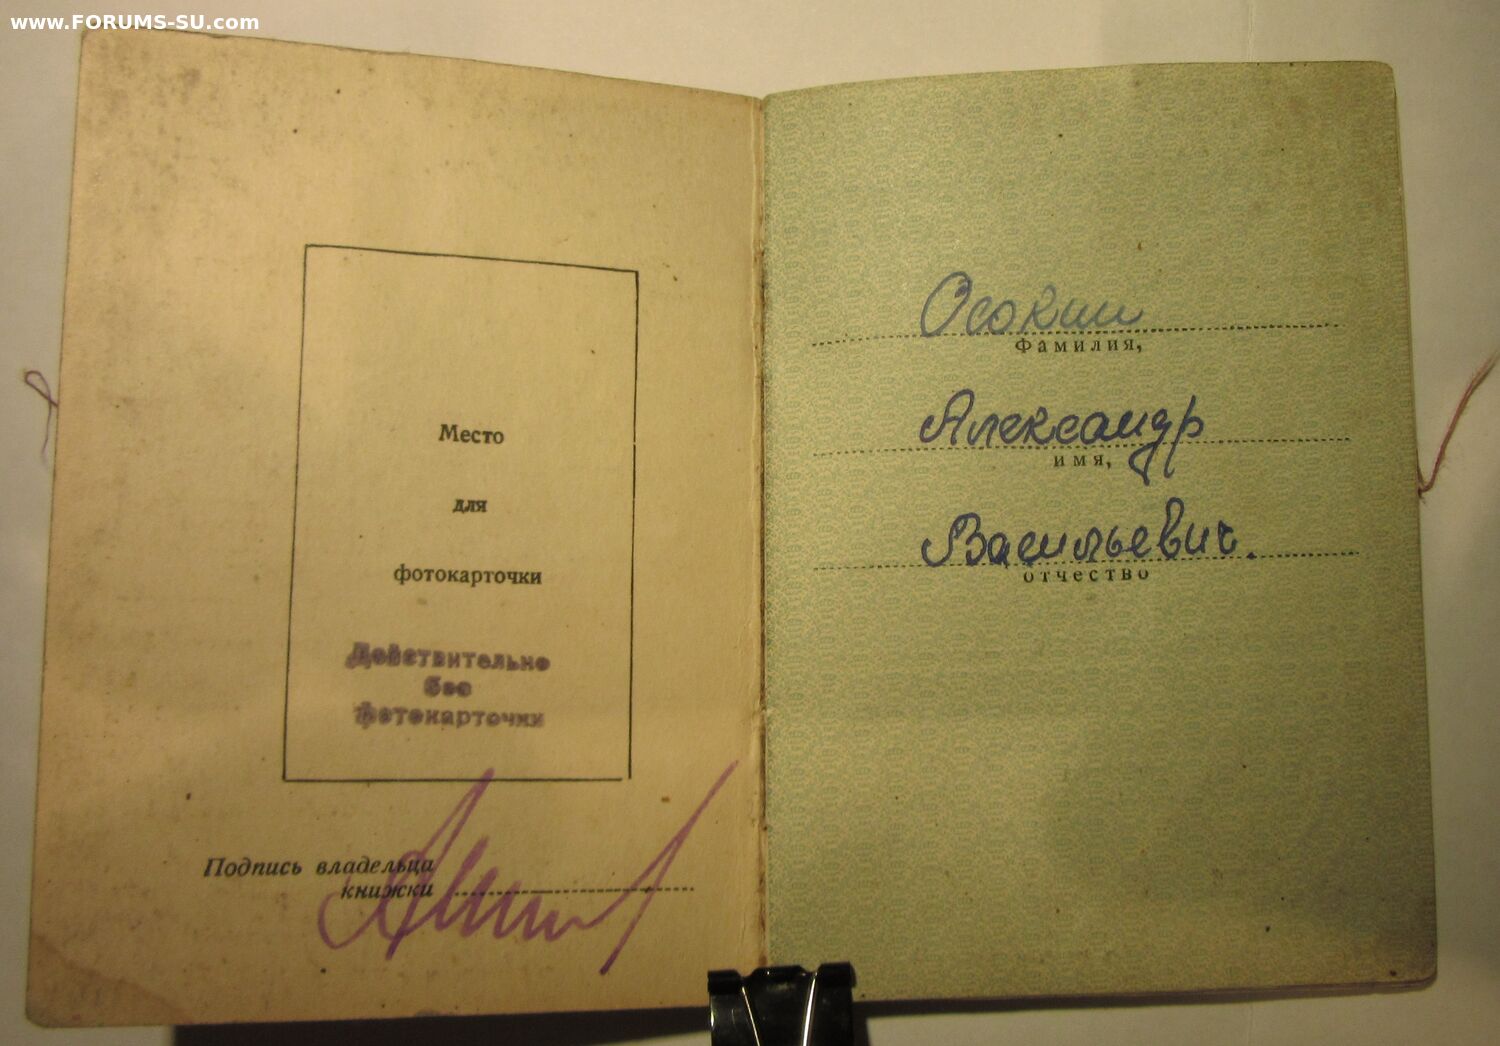 www.FORUMS-SU.com
Место
для
фотокарточки
Действительно
без
фотокарточки
Подпись владельца
книжки
Осокин
Фамилия,
Александр
имя,
Васильевич.
отчество